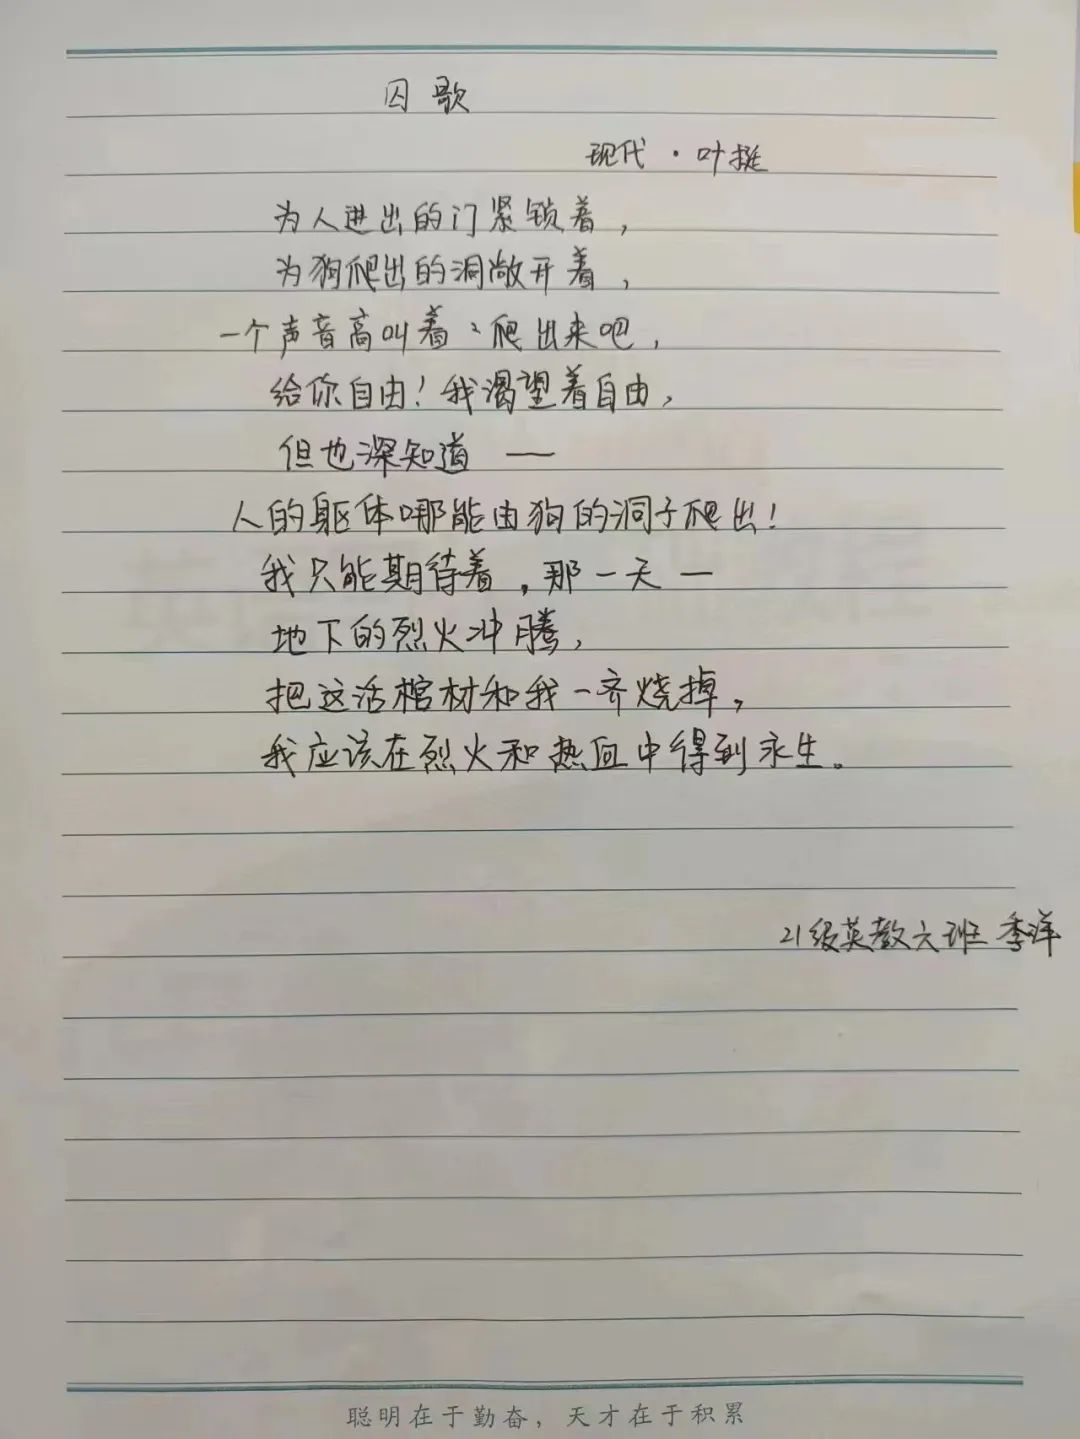 囚歌
现代·叶挺
为人进出的门紧锁着，
为狗爬出的洞敞开着，
一个声音高叫着：爬出来吧，
给你自由！我渴望着自由，
但也深知道——
人的躯体哪能由狗的洞子爬出！
我只能期待着，那一天—
地下的烈火冲腾，
把这活棺材和我一齐烧掉，
我应该在烈火和热血中得到永生。
21级英教六班 季洋
聪明在于勤奋，天才在于积累